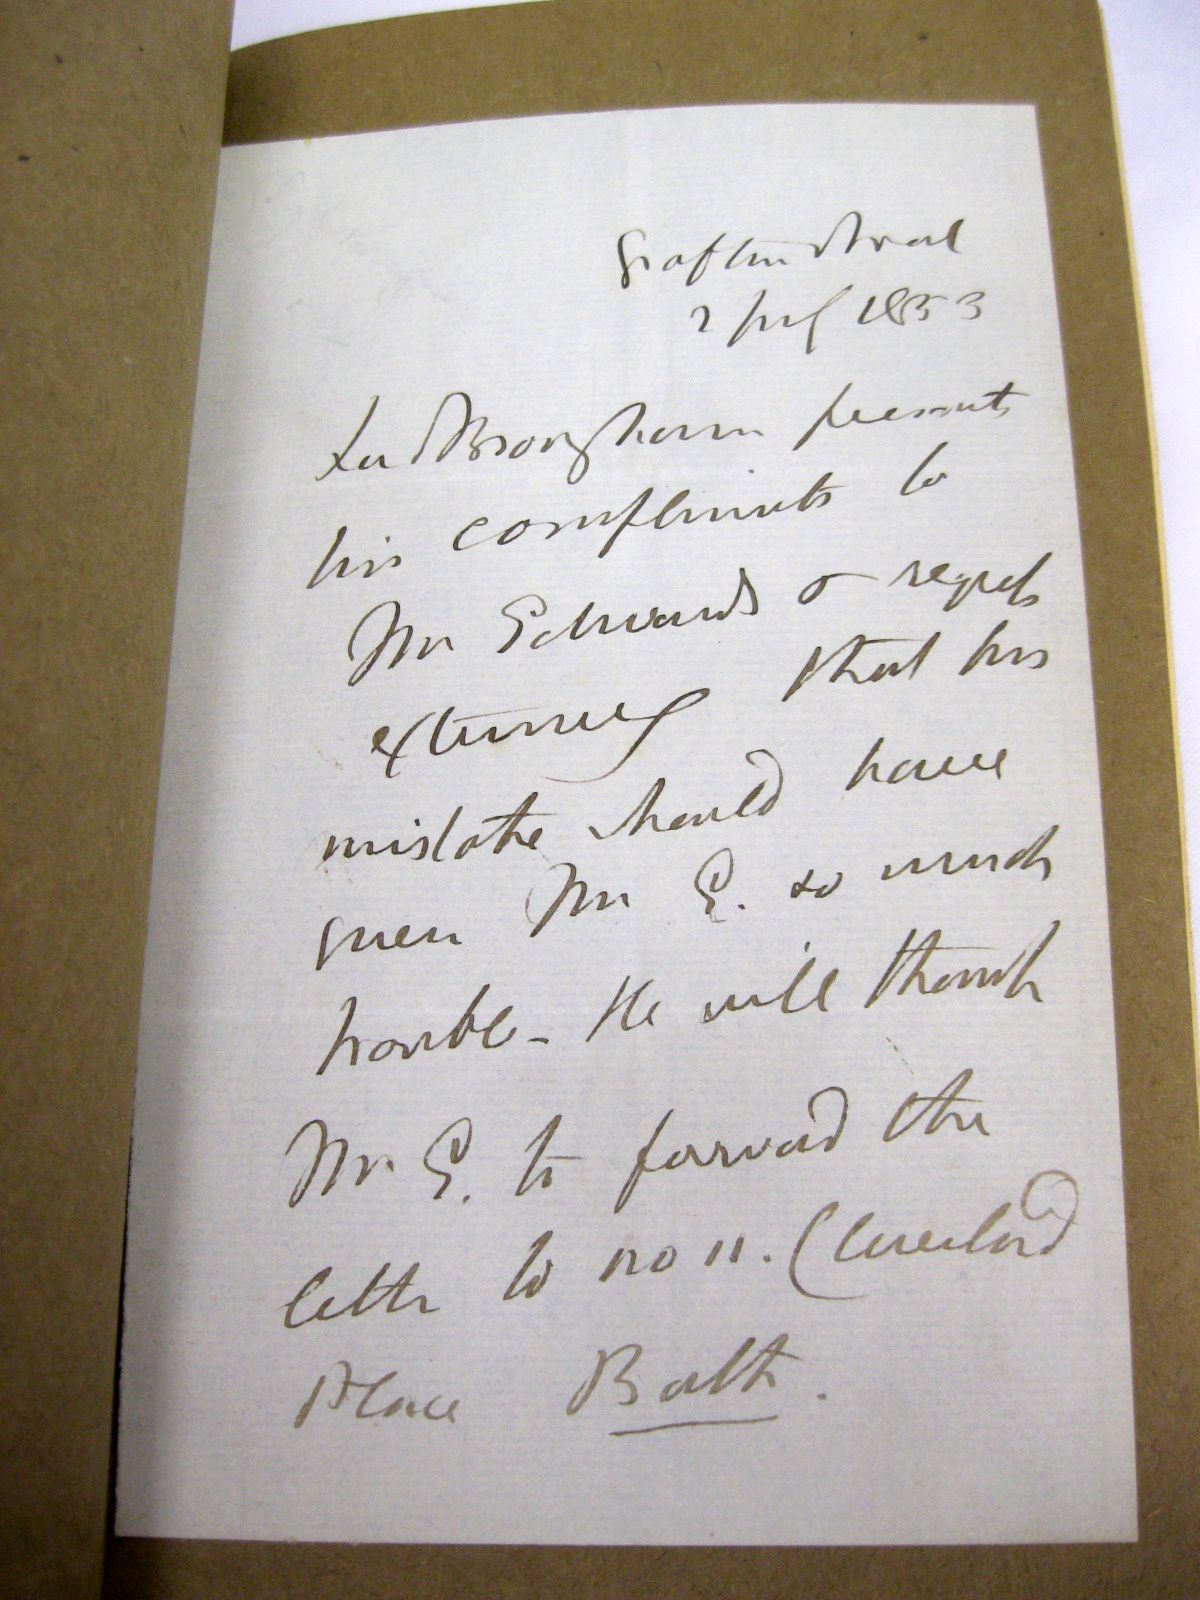 Grafton Street
2 July 1853
Lord Brougham presents
his compliments to
Mr Edwards & regrets
extremely that his
mistake should have
given Mr E. so much
trouble - He will thank
Mr E. to forward the
letter to no 11. Cleveland
Place Bath.